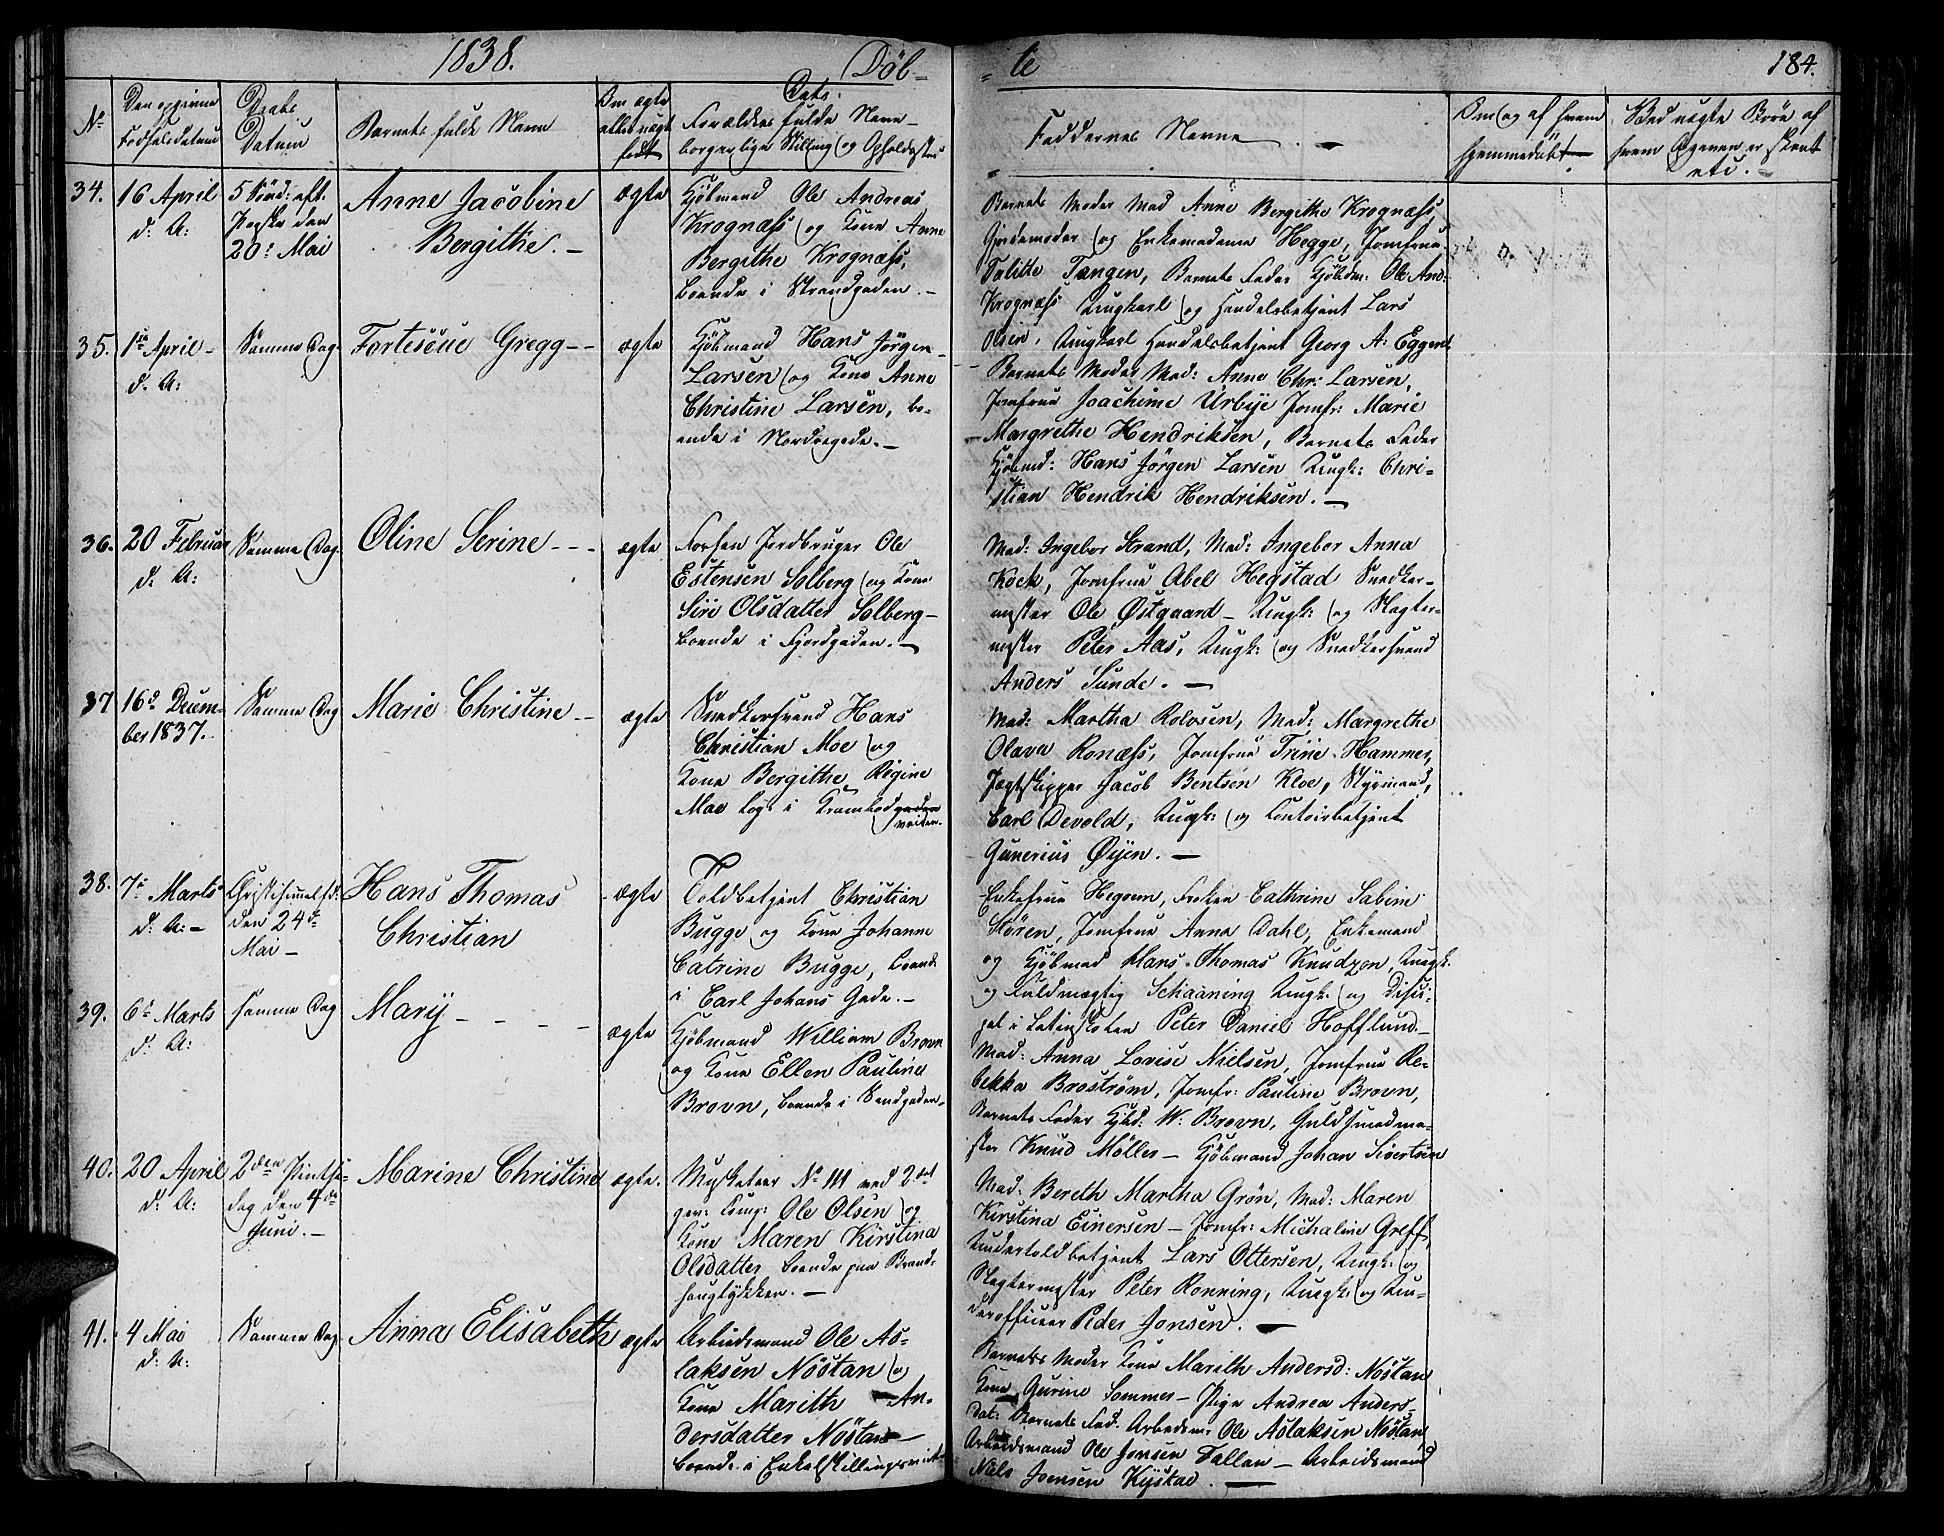 1838.
Døb-
-te
184.
No
Den opgivne
Fødselsdatum
Daabs
Datum
Barnets fulde Navn
Om ægte
eller uægte
født
Dets
Forældres fulde Navn
borgerlige Stilling og Opholdssted
Faddernes Navne
Om og af hvem
hjemmedøbt
Ved uægte Børn af
hvem Opgaven er skeet
etc.
34.
16 April
d: A:
5 Sønd: eft.
Paaske den
20: Mai
Anne Jacobine
Bergithe. -
ægte
Kjøbmand Ole Andreas
Krognæss og Kone Anne
Bergithe Krognæss,
boende i Strandgaden. -
Barnets Moder Mad Anne Bergithe Krognæss,
Gjordemoder og Enkemadame Hegge, Jomfrue
Talitte Tangen, Barnets Fader Kjøbm: Ole And:
Krognæss Ungkarl og Handelsbetjent Lars
Olsen, Ungkarl Handelsbetjent Georg A: Eggen
35.
1ste April -
d. A:
Samme Dag
Forteseue Gregg - -
ægte
Kjøbmand Hans Jørgen
Larsen og Kone Anne
Christine Larsen, bo-
ende i Nordregade. -
Barnets Moder Mad: Anne Chr: Larsen,
Jomfrue Joachime Urbye Jomfr: Marie
Margrethe Hendriksen, Barnets Fader
Kjøbmd: Hans Jørgen Larsen Ungk: Chri-
stian Hendrik Hendriksen. -
36.
20 Februar
d: A:
Samme Dag
Oline Serine - - -
ægte
Forhen Jordbruger Ole
Estensen Solberg og Kone
Siri Olsdatter Solberg -
boende i Fjordgaden. -
Mad: Ingebor Strand, Mad: Ingebor Anna
Kock, Jomfrue Abel Hegstad Snedker-
mester Ole Østgaard - Ungk: og Slagter-
mester Peter Aas, Ungk: og Snedkersvend
Anders Sunde. -
37
16de Decem-
ber 1837.
Samme Dag
Marie Christine - -
ægte
Snedkersvend Hans
Christian Moe og
Kone Bergithe Regine
Moe log: i Krambodgaden
veiten.
Mad: Martha Rolvsen, Mad: Margrethe
Olava Ronæss, Jomfrue Trine Hammer,
Jægtskipper Jacob Bentsen Kloe, Styrmand,
Carl Devold, Ungk: og Contoirbetjent
Gunerius Øyen. -
38.
7de Marts
d: A: -
Christihimmelfd:
den 24de
Mai -
Hans Thomas
Christian
ægte
Toldbetjent Christian
Bugge og Kone Johanne
Catrine Bugge, boende
i Carl Johans Gade. -
Enkefrue Hegoun, Frøken Cathrine Sabine
Støren, Jomfrue Anna Dahl, Enkemand
og Kjøbmad Hans Thomas Knudzon, Ungk:
og Fuldmægtig Schaaning Ungk: og Disci-
pel i Latinskolen Peter Daniel Hofflund. -
39.
6te Marts
d: A:
samme Dag
Mary - - - -
ægte
Kjøbmand William Brovn
og Kone Ellen Pauline
Brovn, boende i Sandgaden -
Mad: Anna Lovise Nielsen, Jomfrue Re-
bekka Brostrøm, Jomfr: Pauline Brovn,
Barnets Fader Kjbd: W: Brovn, Guldsmedme-
ster Knud Møller - Kjøbmand Johan Sivertsen
40.
20 April
d: A:
2den Pintse-
dag den 4de
Juni. -
Marine Christine
ægte.
Musketeer No 111 ved 2det
gev: Comp: Ole Olsen og
Kone Maren Kirstina
Olsdatter boende paa Brand-
hougløkken. -
Mad: Bereth Martha Grøn, Mad: Maren
Kirstina Einersen - Jomfr: Michaline Greff,
Undertoldbetjent Lars Ottersen, Ungk: og
Slagtermester Peter Ronning, Ungk: og Un-
derofficeer Peder Jonsen. -
41.
4 Mai
d: A:
Samme Dag
Anna Elisabeth
ægte
Arbeidsmand Ole As-
laksen Nøstan og
Kone Marith An-
dersdatter Nøstan -
boende i Enkelskillingsveiten
Barnets Moder Kone Marith Andersd: Nøstan
Kone Gurine Sommer - Pige Andrea Anders-
dat: Barnets Fad. Arbeidsm: Ole Aslaksen Nøstan,
Arbeidsmand Ole Jonsen Tallan - Arbeidsmand
Niels Joensen Kystad. -